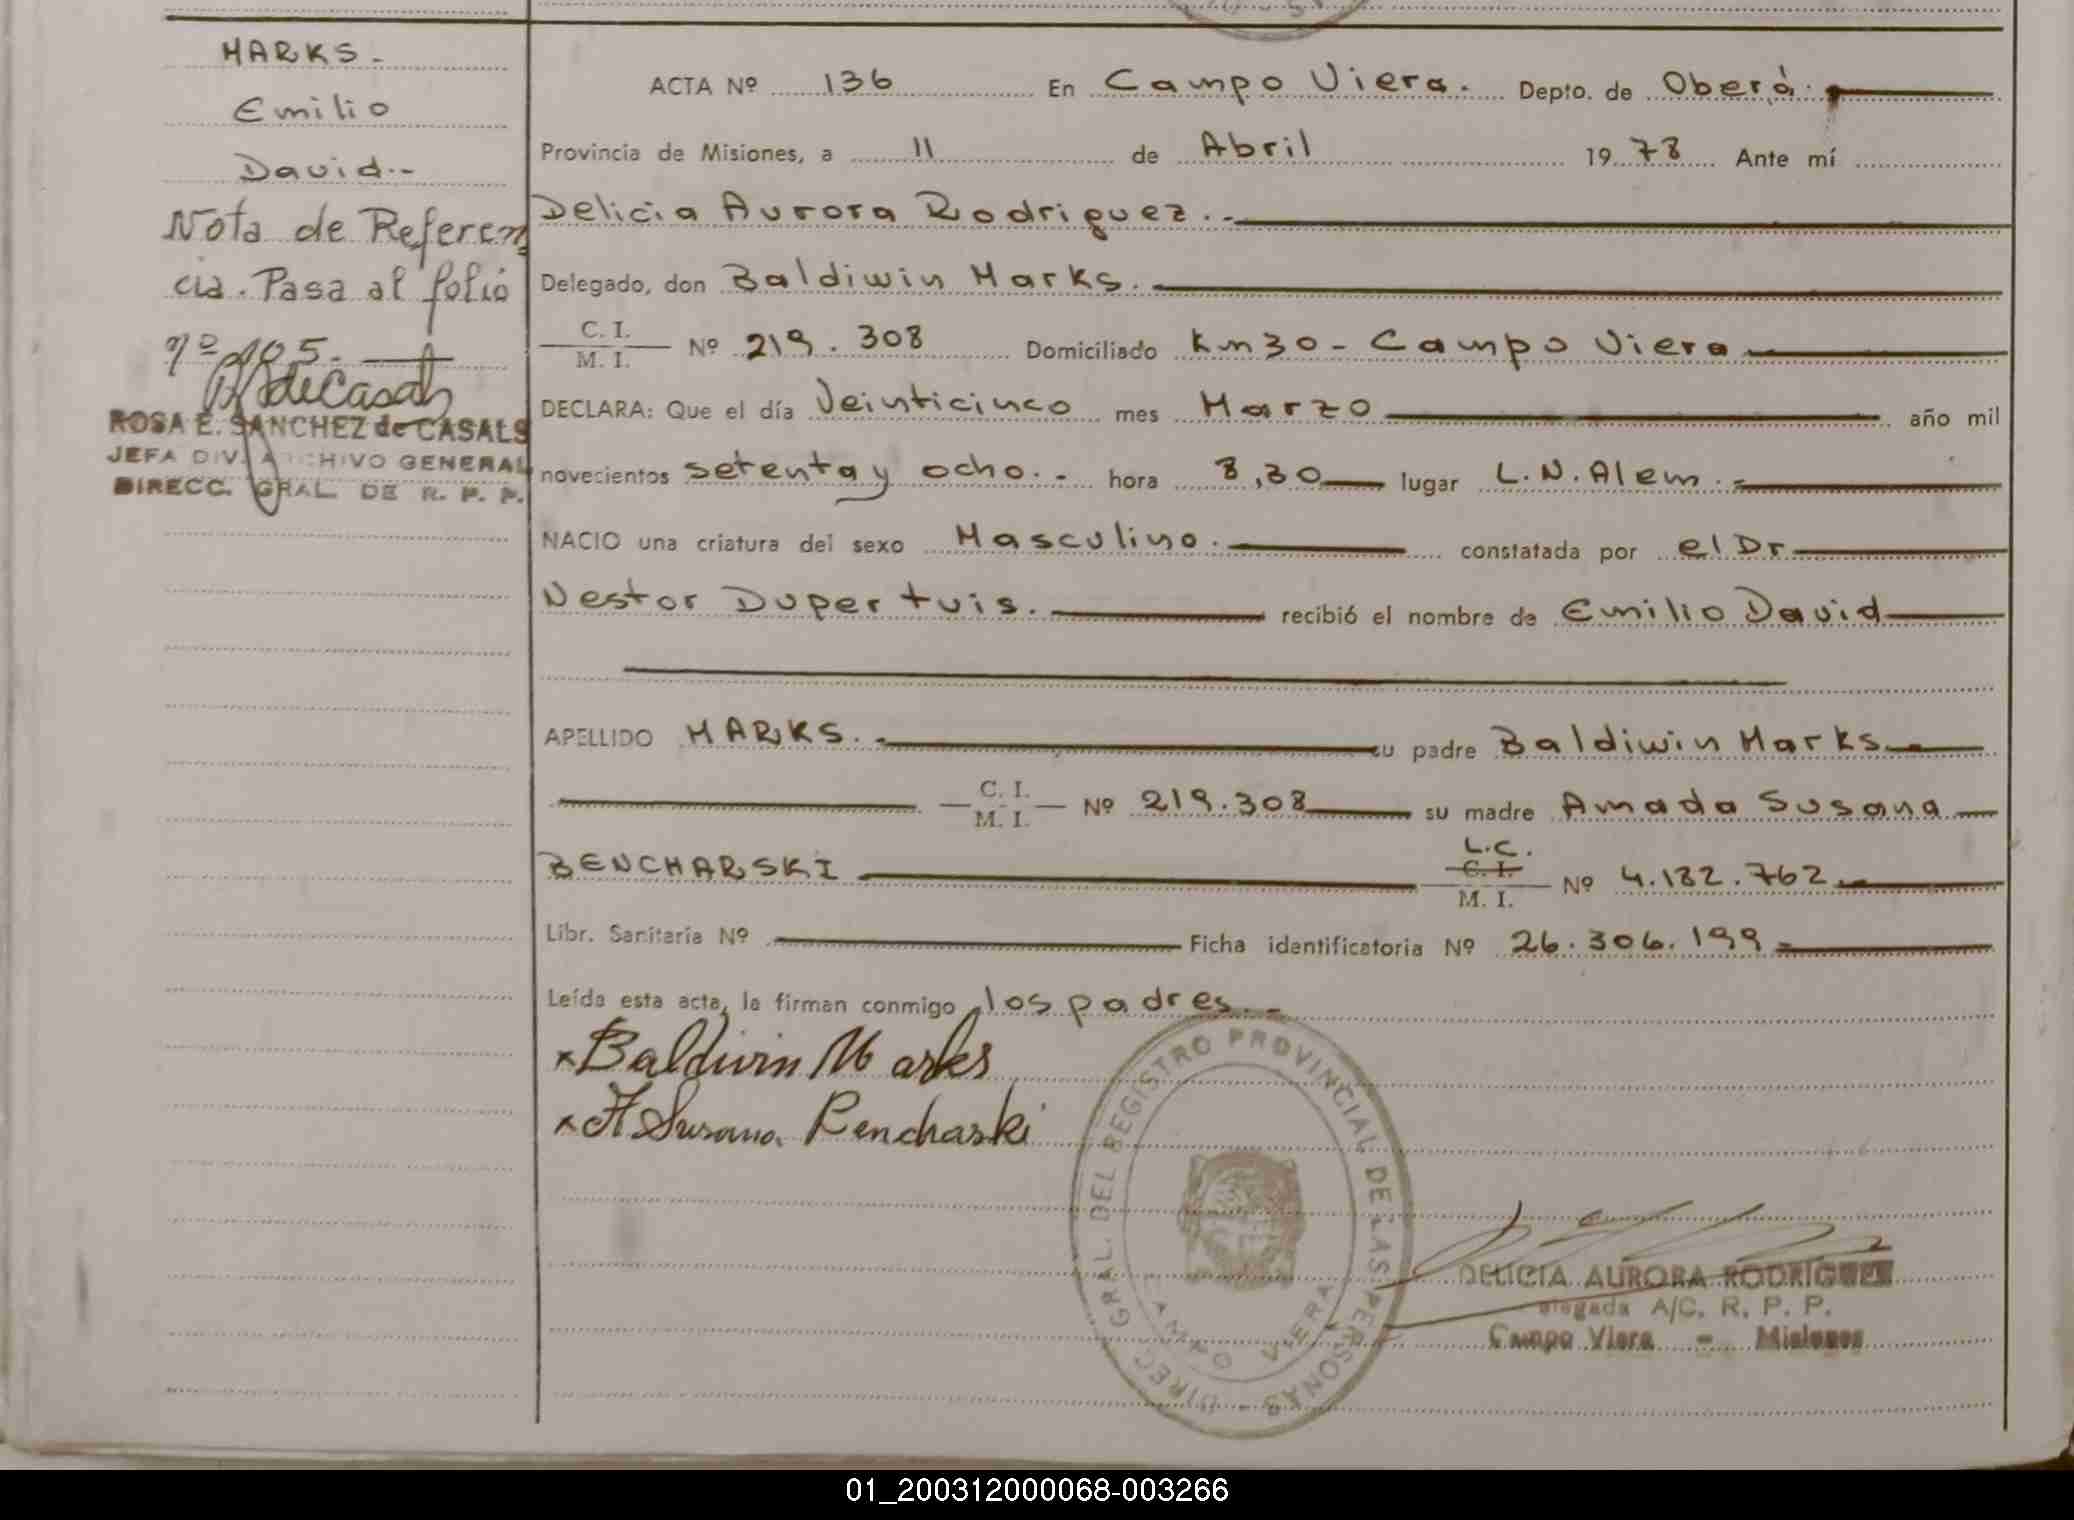 MARKS.-
Emilio
David.-
Nota de Referen
cia. Pasa al folio
nº 105.-
ROSA E. SANCHEZ de CASALS
JEFA DIV. ARCHIVO GENERAL
DIRECC. GRAL. DE R. P. P.
ACTA Nº 136 En Campo Viera. Depto. de Oberá.
Provincia de Misiones, a 11 de Abril 1978 Ante mí
Delicia Aurora Rodriguez.-
Delegado, don Baldiwin Marks.
C. I.
M. I. Nº 219.308 Domiciliado Km 30 - Campo Viera
DECLARA: Que el día Veinticinco mes Marzo año mil
novecientos setenta y ocho.- hora 8,30 lugar L.N. Alem.-
NACIO una criatura del sexo Masculino. constatada por el Dr
Nestor Dupertuis. recibió el nombre de Emilio David
APELLIDO MARKS.- su padre Baldiwin Marks
C. I.
M. I. Nº 219.308 su madre Amada Susana
L.C.
BENCHARSKI C. I.
M. I. Nº 4.182.762
Libr. Sanitaria Nº Ficha identificatoria Nº 26.306.199
Leída esta acta, la firman conmigo los padres.-
x Baldiwin Marks
x A Susana Benchaski
DIREC. GRAL. DEL REGISTRO PROVINCIAL DE LAS PERSONAS
CAMPO VIERA
DELICIA AURORA RODRIGUEZ
Delegada A/C. R. P. P.
Campo Viera - Misiones
01_200312000068-003266